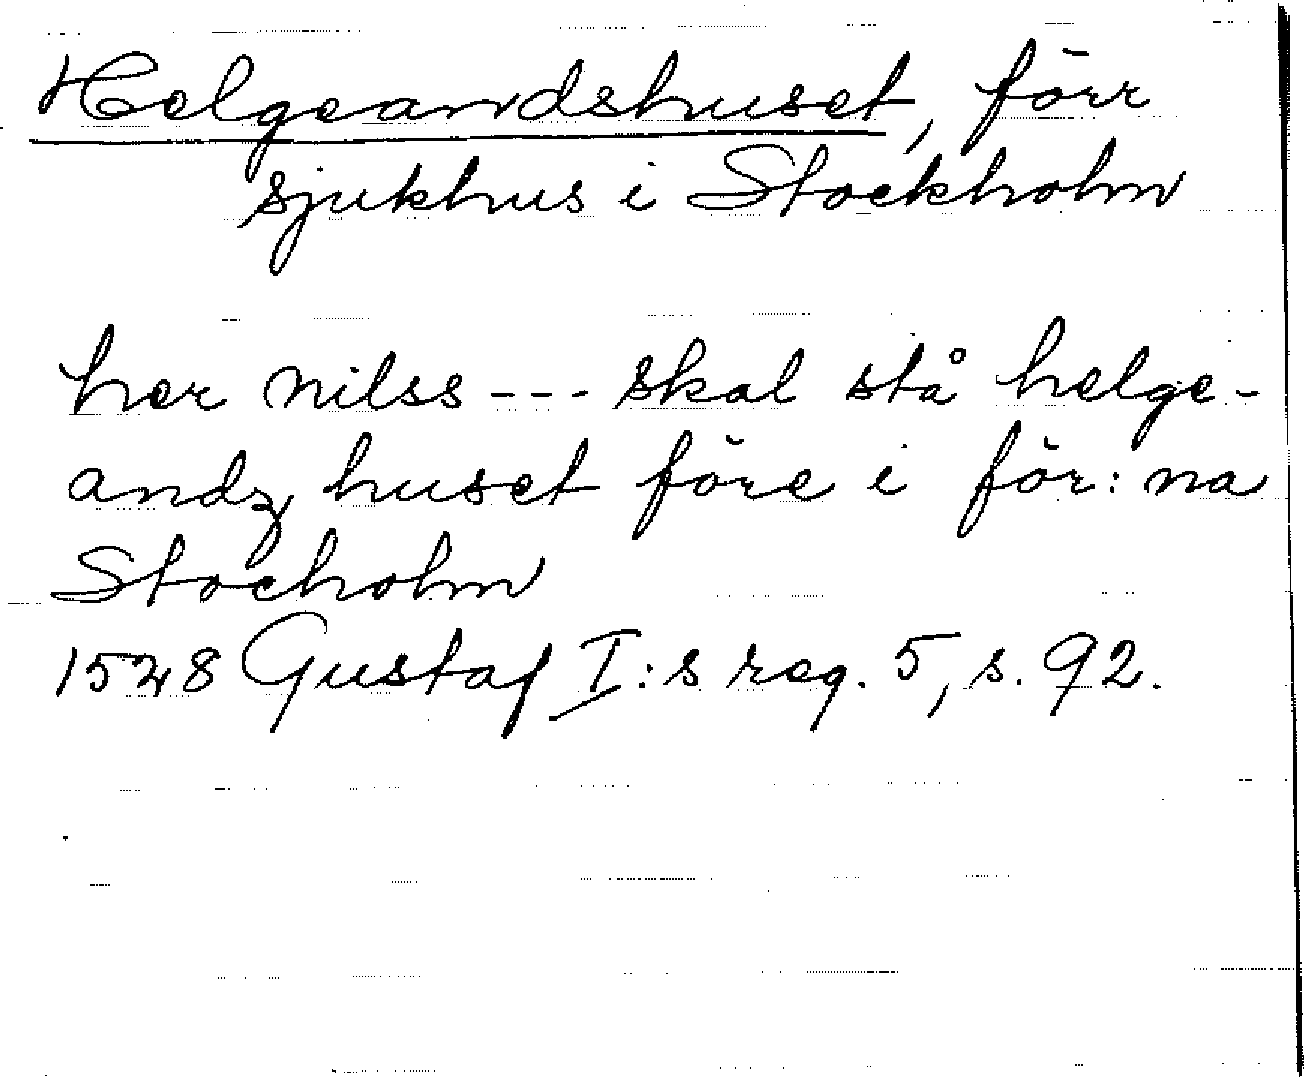 Helgeandshuset, förr
sjukhus i Stockholm
her nilss --- skal stå helge-
andz huset före i för: na
Stocholm
1528 Gustaf I:s reg. 5, s. 92.